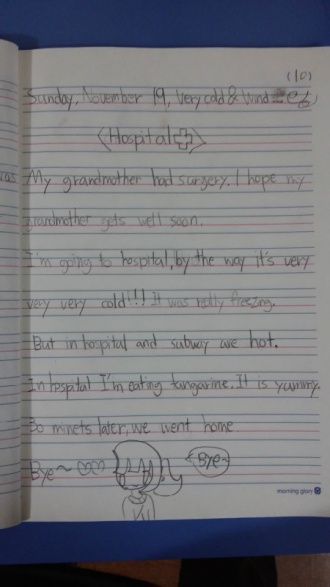 (10)
Sunday, November 19, Very cold & Wind
<Hospital>
My grandmother had surgery. I hope my
grandmother gets well soon.
I'm going to hospital, by the way it's very
very very cold!!! It was really freezing.
But in hospital and subway are hot.
In hospital I'm eating tangarine. It is yummy.
30 minets later, we went home.
Bye~
Bye~
morning glory